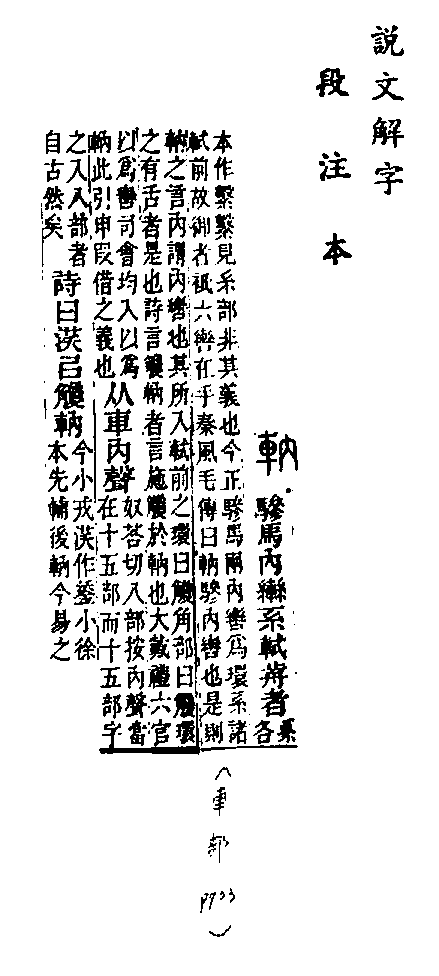 說文解字
段注本
軜
驂馬內轡系軾前者系各
本作繫繫見系部非其義也今正驂馬兩內轡爲環系諸
軾前故御者祗六轡在手秦風毛傳曰軜驂內轡也是則
軜之言內謂內轡也其所入軾前之環曰觼角部曰觼環
之有舌者是也詩言觼軜者言施觼於軜也大戴禮六官
以爲轡司會均入以爲
軜此引申叚借之義也
从車內聲
奴荅切入部按內聲當
在十五部而十五部字
之入入部者
自古然矣
詩曰浂㠯觼軜
今小戎浂作鋈小徐
本先輔後軜今易之
(車部 P733)